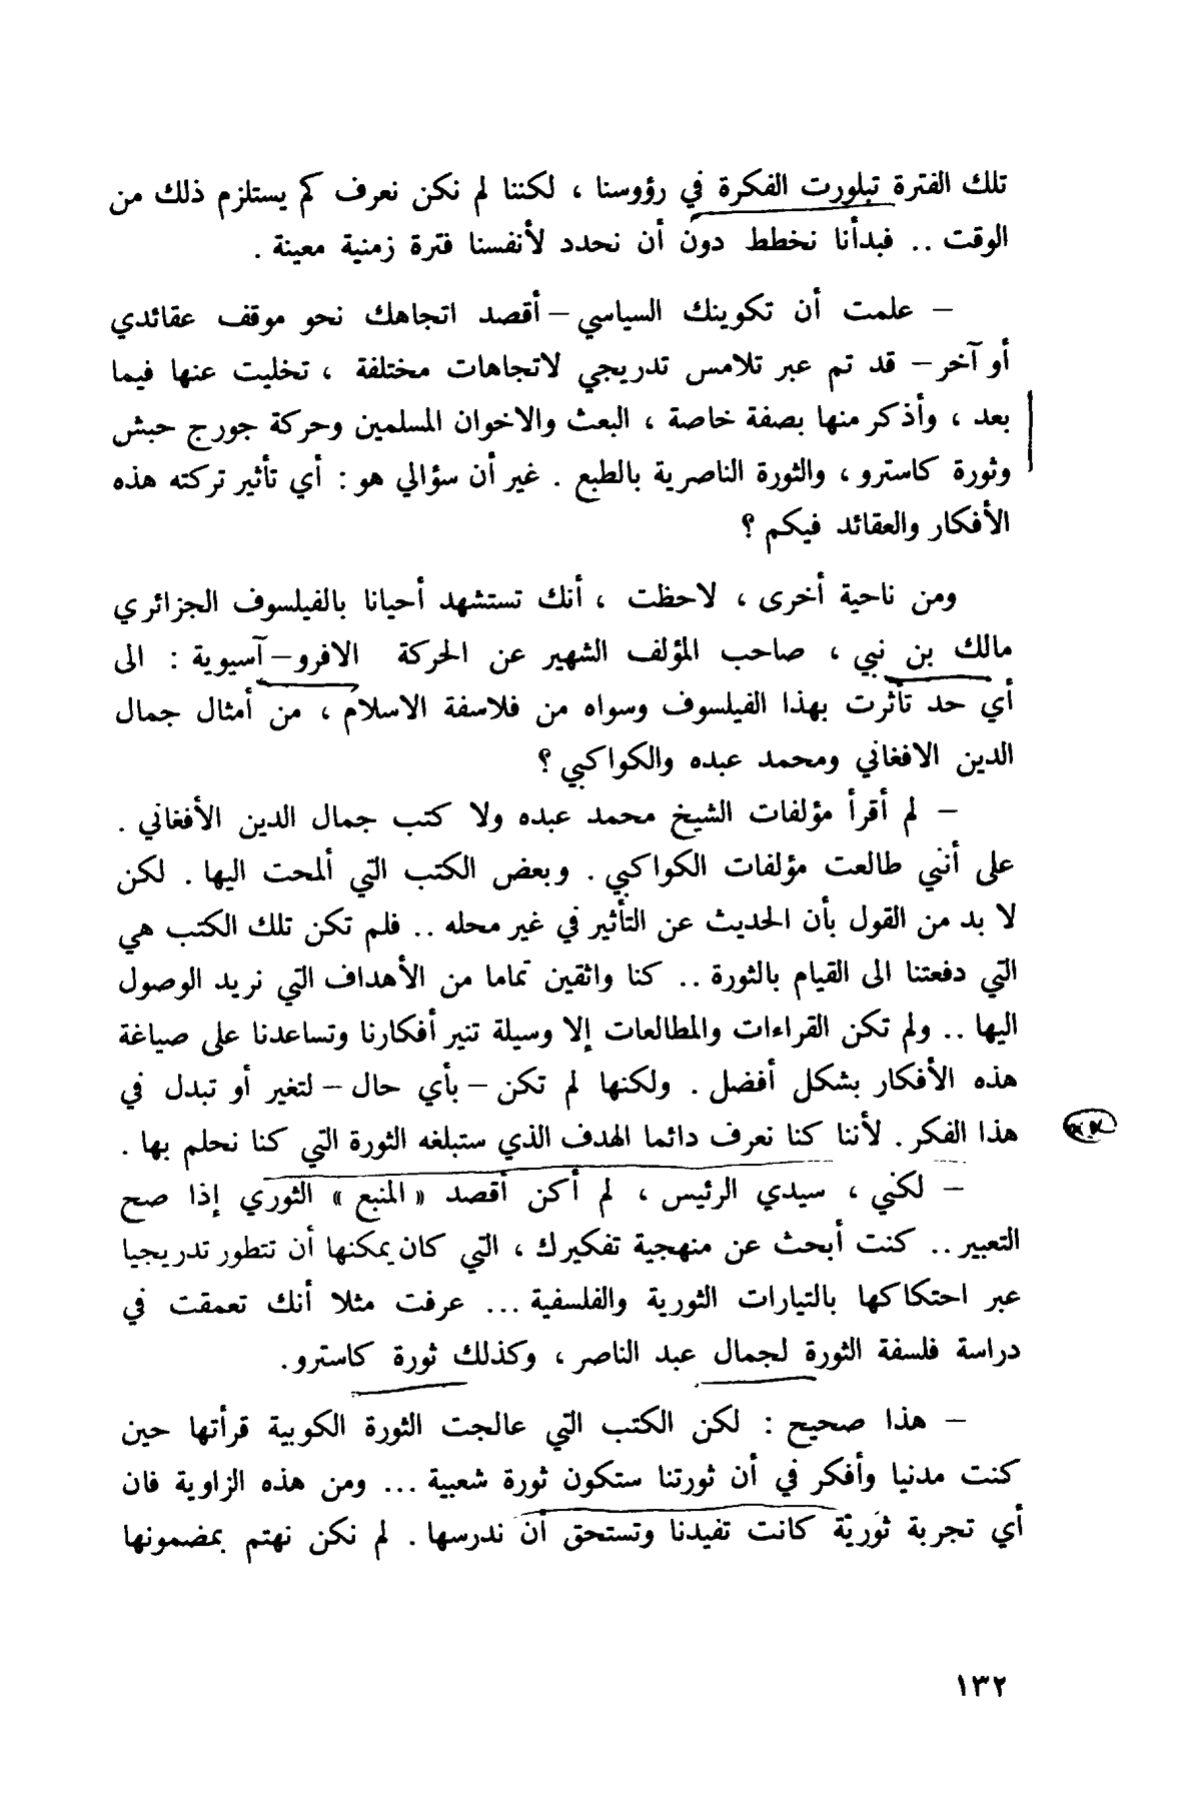 تلك الفترة تبلورت الفكرة في رؤوسنا ، لكننا لم نكن نعرف كم يستلزم ذلك من
الوقت .. فبدأنا نخطط دون أن نحدد لأنفسنا فترة زمنية معينة .
– علمت أن تكوينك السياسي – أقصد اتجاهك نحو موقف عقائدي
أو آخر – قد تم عبر تلامس تدريجي لاتجاهات مختلفة ، تخليت عنها فيما
بعد ، وأذكر منها بصفة خاصة ، البعث والاخوان المسلمين وحركة جورج حبش
وثورة كاسترو ، والثورة الناصرية بالطبع . غير أن سؤالي هو : أي تأثير تركته هذه
الأفكار والعقائد فيكم ؟
ومن ناحية أخرى ، لاحظت ، أنك تستشهد أحيانا بالفيلسوف الجزائري
مالك بن نبي ، صاحب المؤلف الشهير عن الحركة الافرو – آسيوية : الى
أي حد تأثرت بهذا الفيلسوف وسواه من فلاسفة الاسلام ، من أمثال جمال
الدين الافغاني ومحمد عبده والكواكبي ؟
– لم أقرأ مؤلفات الشيخ محمد عبده ولا كتب جمال الدين الأفغاني .
على أنني طالعت مؤلفات الكواكبي . وبعض الكتب التي ألمحت اليها . لكن
لا بد من القول بأن الحديث عن التأثير في غير محله .. فلم تكن تلك الكتب هي
التي دفعتنا الى القيام بالثورة .. كنا واثقين تماما من الأهداف التي نريد الوصول
اليها .. ولم تكن القراءات والمطالعات إلا وسيلة تنير أفكارنا وتساعدنا على صياغة
هذه الأفكار بشكل أفضل . ولكنها لم تكن – بأي حال – لتغير أو تبدل في
هذا الفكر . لأننا كنا نعرف دائما الهدف الذي ستبلغه الثورة التي كنا نحلم بها .
– لكني ، سيدي الرئيس ، لم أكن أقصد « المنبع » الثوري إذا صح
التعبير .. كنت أبحث عن منهجية تفكيرك ، التي كان يمكنها أن تتطور تدريجيا
عبر احتكاكها بالتيارات الثورية والفلسفية ... عرفت مثلا أنك تعمقت في
دراسة فلسفة الثورة لجمال عبد الناصر ، وكذلك ثورة كاسترو .
– هذا صحيح : لكن الكتب التي عالجت الثورة الكوبية قرأتها حين
كنت مدنيا وأفكر في أن ثورتنا ستكون ثورة شعبية ... ومن هذه الزاوية فان
أي تجربة ثوريّة كانت تفيدنا وتستحق أن ندرسها . لم نكن نهتم بمضمونها
١٣٢